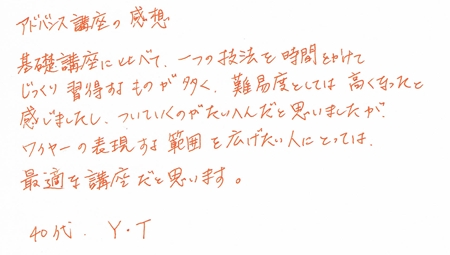 アドバンス講座の感想
基礎講座に比べて、一つの技法を時間をかけて
じっくり習得するものが多く、難易度としては高くなったと
感じましたし、ついていくのがたいへんだと思いましたが、
ワイヤーの表現する範囲を広げたい人にとっては、
最適な講座だと思います。
40代. Y・T